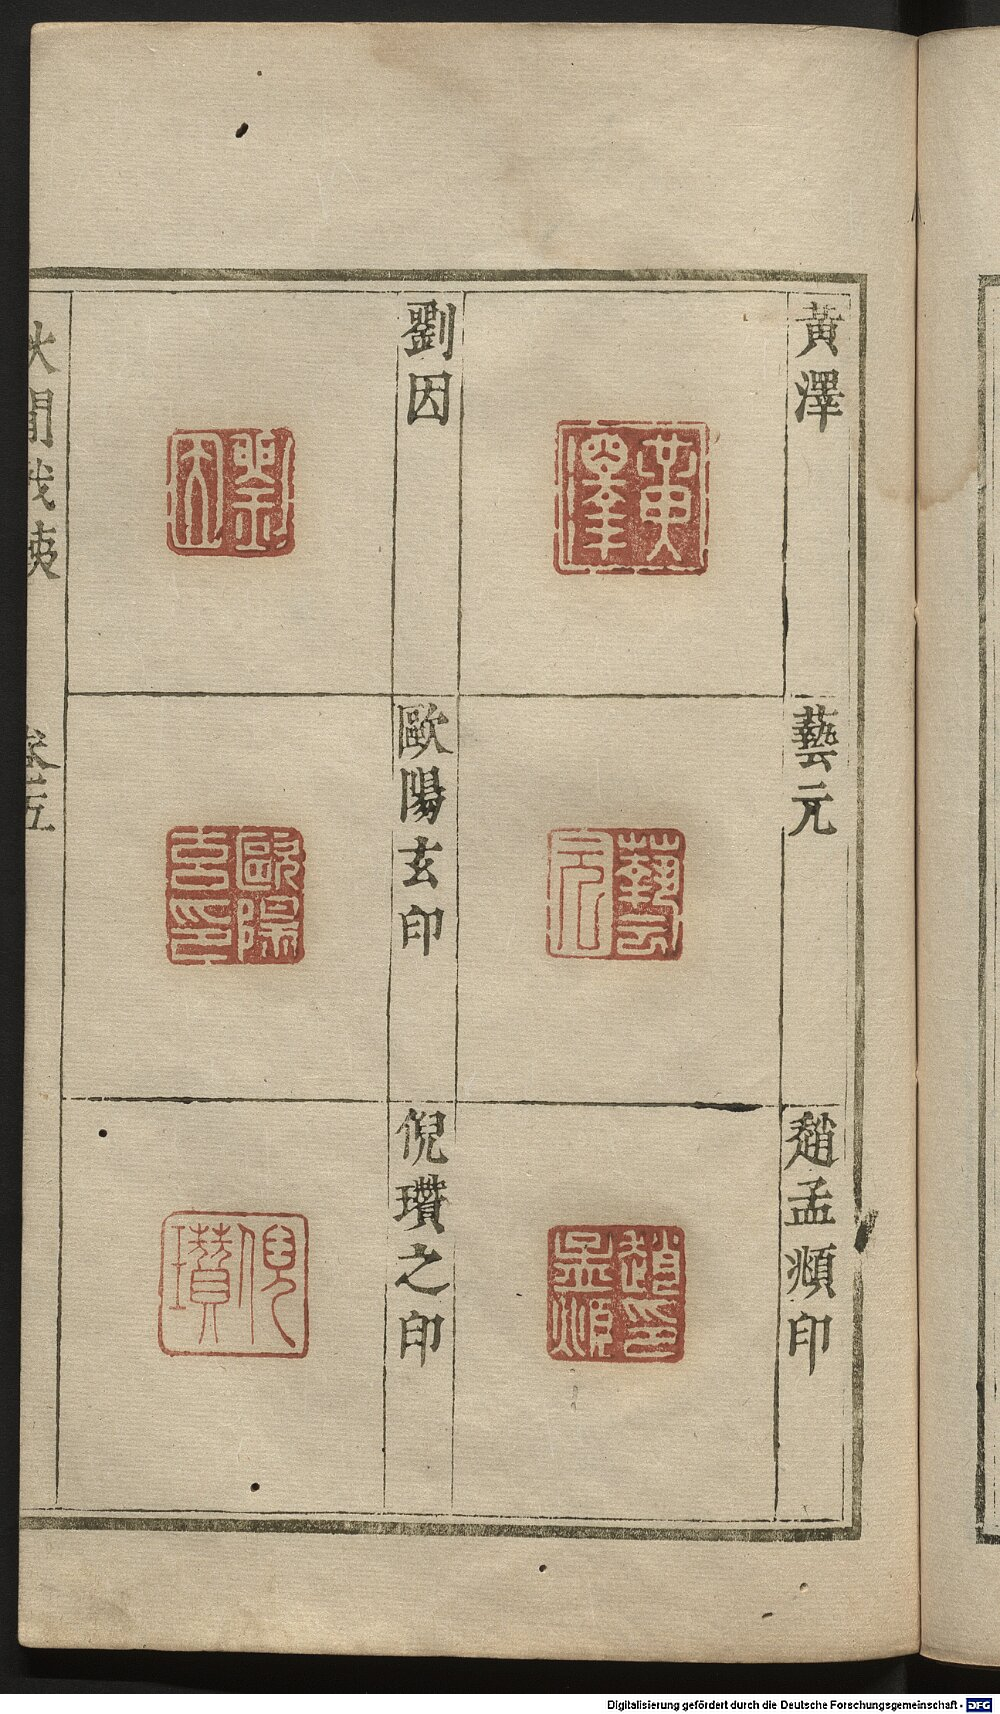 黃澤
藝元
趙孟頫印
劉因
歐陽玄印
倪瓚之印
黃澤
藝元
趙孟頫印
劉因
歐陽玄印
倪瓚
秋閒戲
卷五
Digitalisierung gefördert durch die Deutsche Forschungsgemeinschaft - DFG